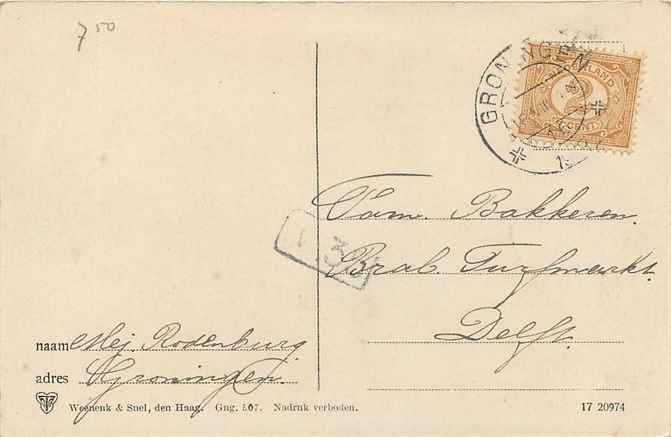 7 50
GRONINGEN
LAND
2
Fam. Bakkeren.
Brab. Turfmarkt.
Delft.
3
naam Mej. Rodenburg
adres Groningen.
Weenenk & Snel, den Haag. Gng. 567. Nadruk verboden.
17 20974